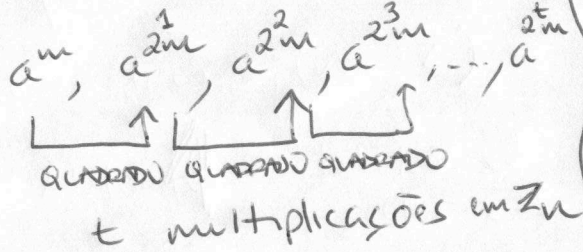 a^m, a^{2^1 m}, a^{2^2 m}, a^{2^3 m}, ..., a^{2^t m}
QUADRADO QUADRADO QUADRADO
t multiplicações em Z_n